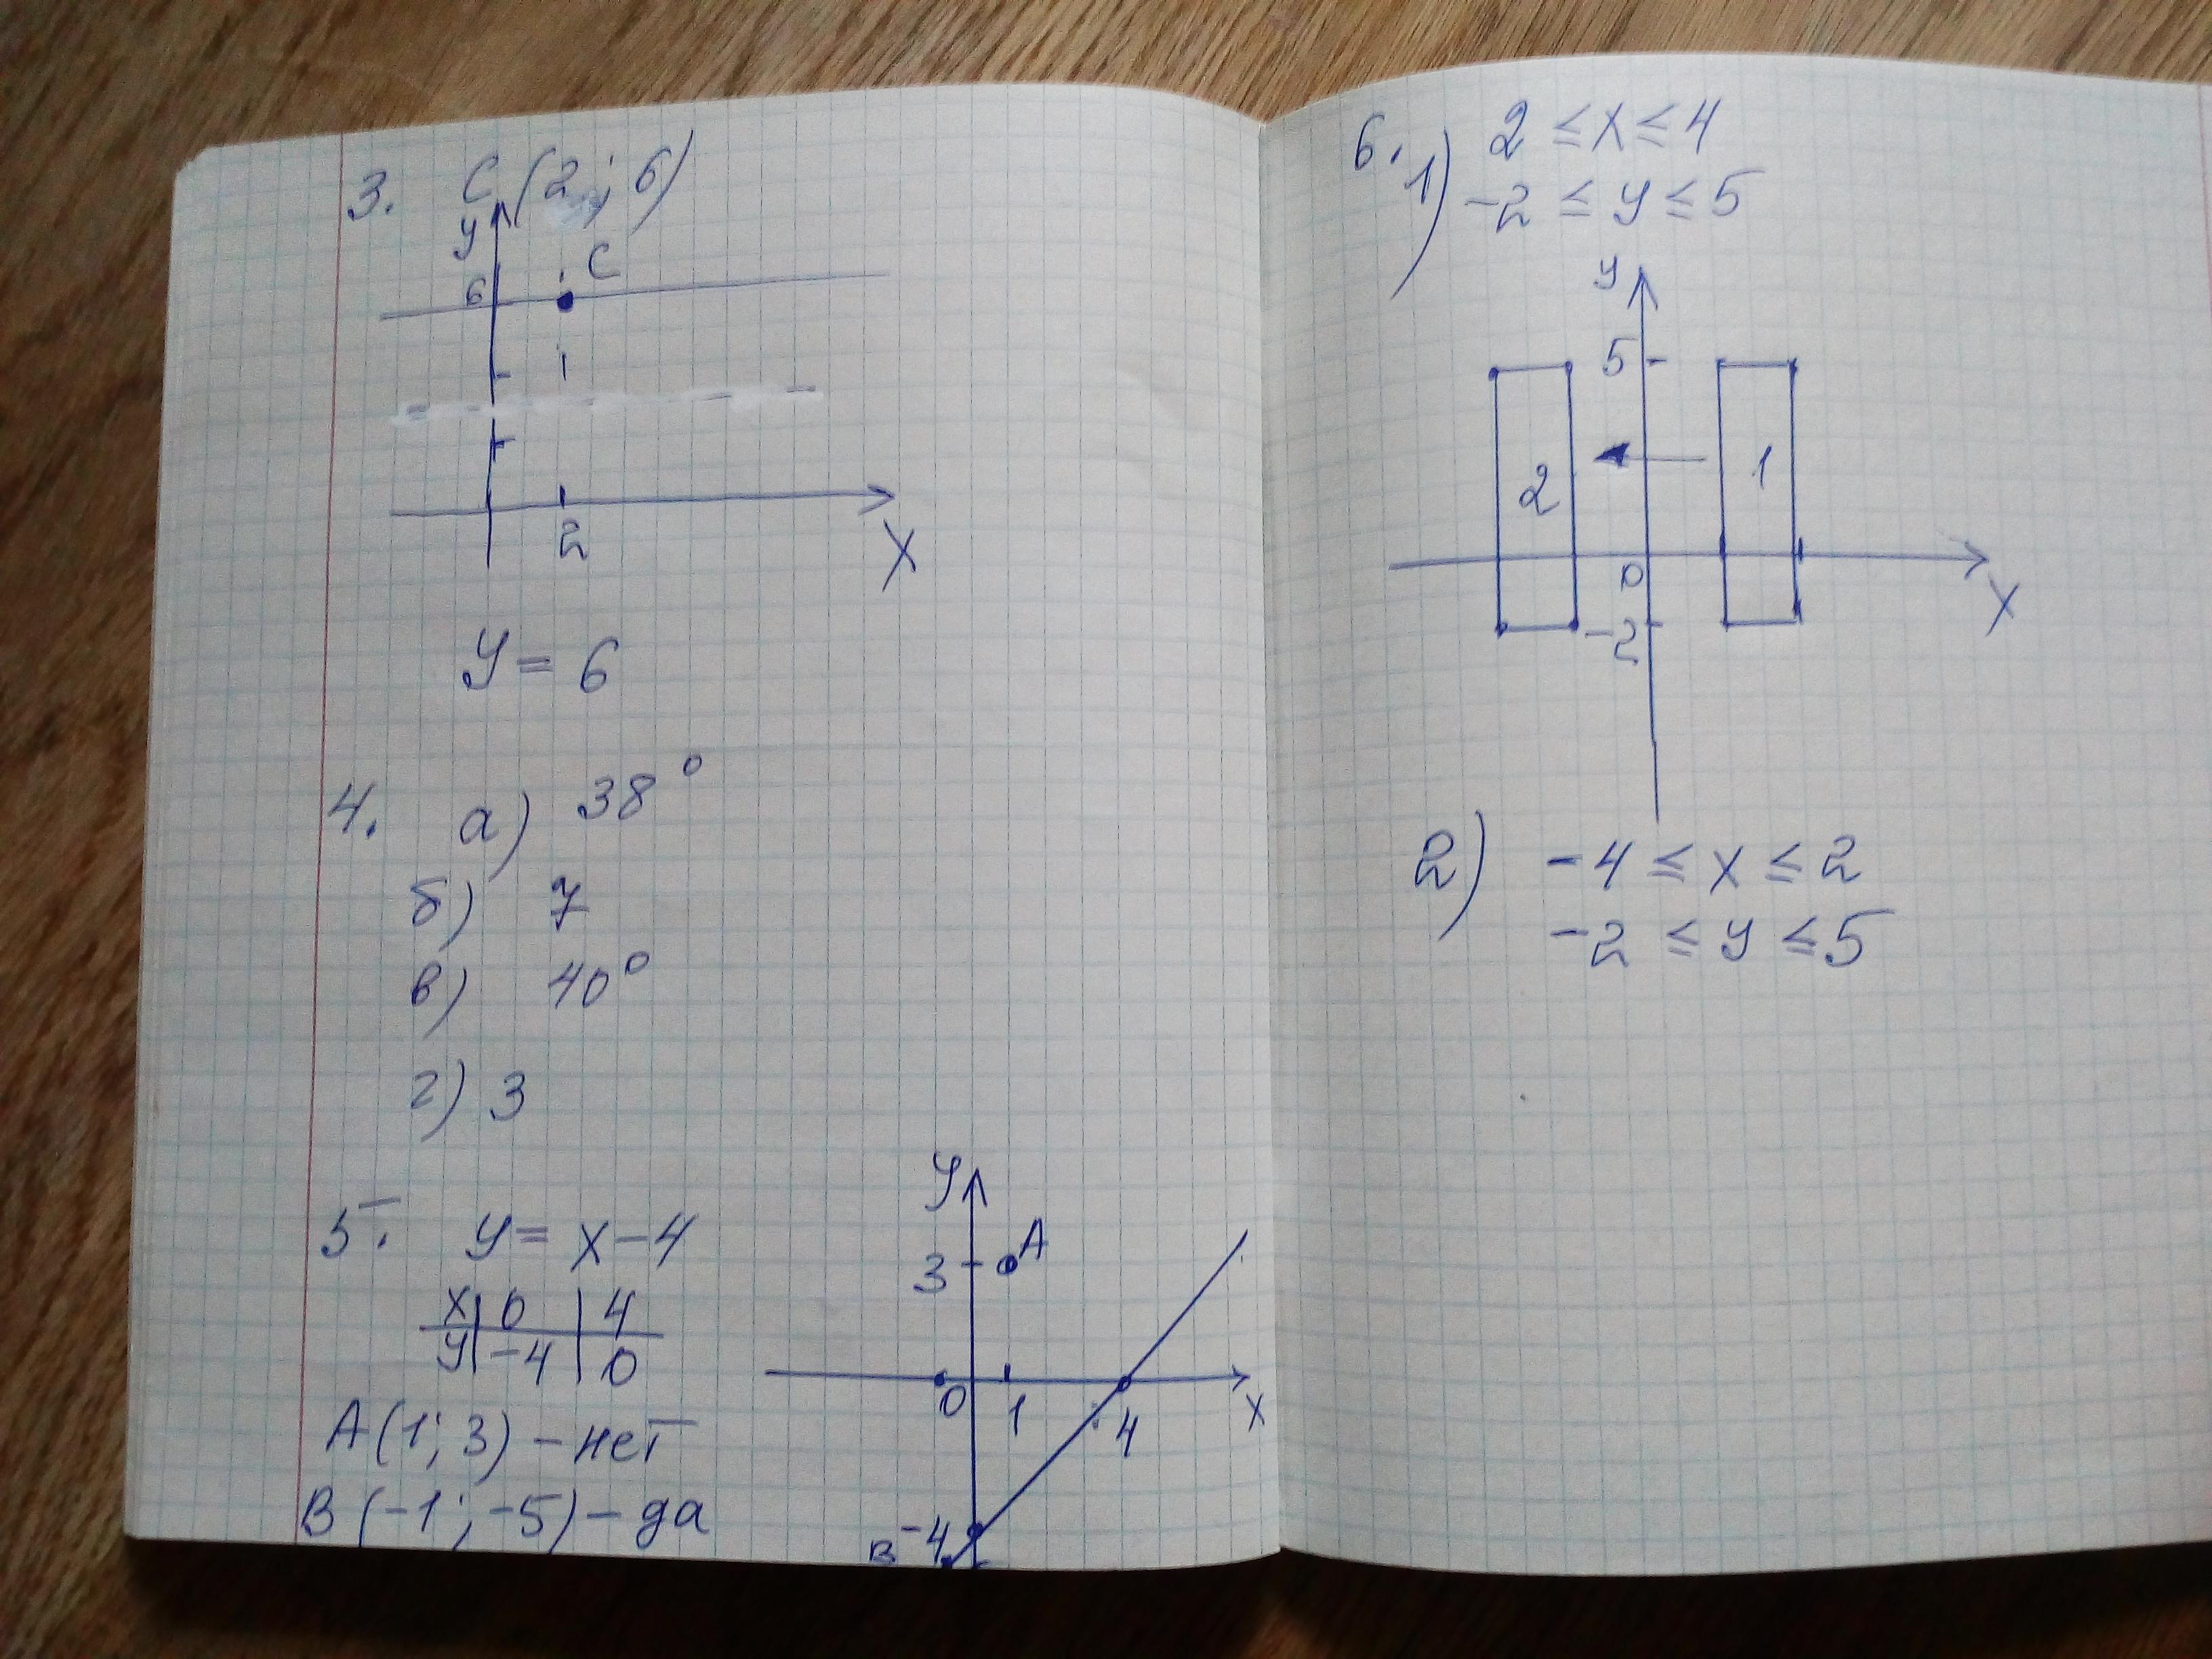 3. С (2; 6)
y
С
6
2
X
y = 6
4. а) 38°
б) 7
в) 40°
г) 3
5. y = x - 4
x | 0 | 4
y | -4 | 0
A (1; 3) - нет
B (-1; -5) - да
y
3
A
0
1
4
x
-4
B
6. 1) 2 ≤ x ≤ 4
-2 ≤ y ≤ 5
y
5
2
1
0
-2
X
2) -4 ≤ x ≤ 2
-2 ≤ y ≤ 5